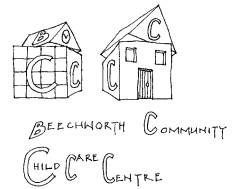 B C C C C C
BEECHWORTH COMMUNITY
CHILD CARE CENTRE